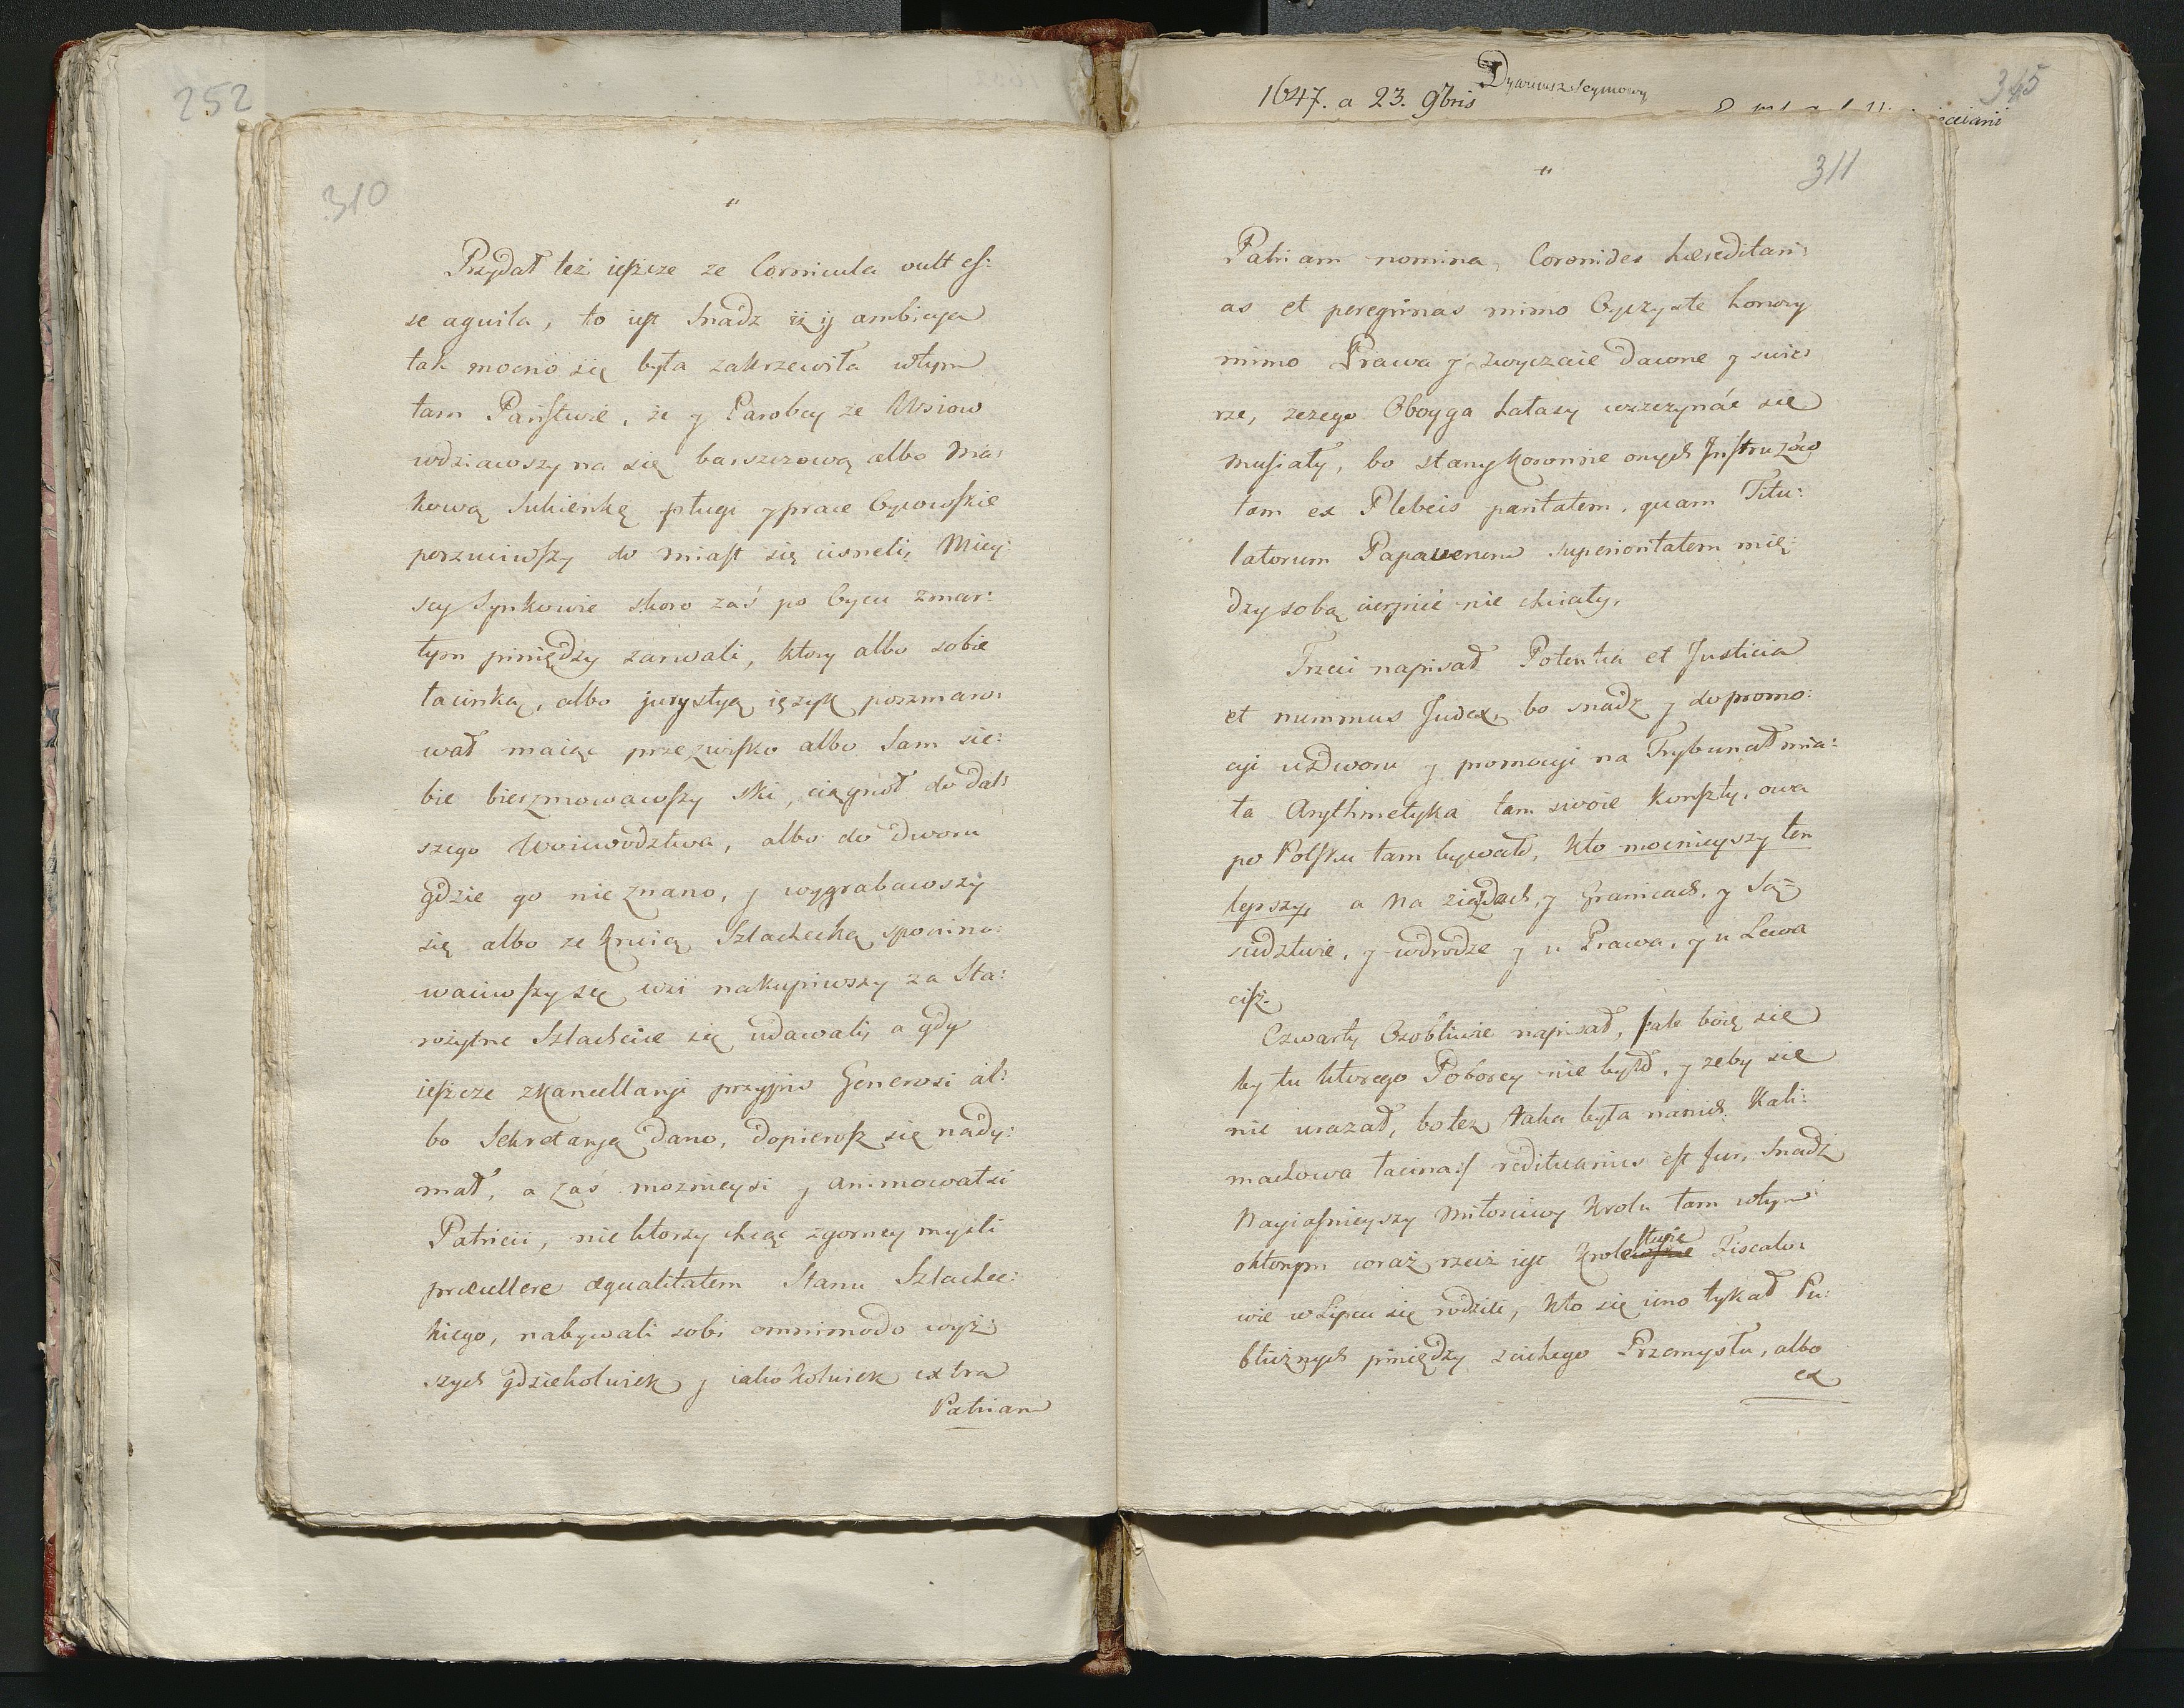 252
310
"
Przydał też ieszcze ze Cornicula vult es:
se aquila, to iest snadz iż ij ambicya
tak mocno się była zakrzewiła wtym
tam Państwie, że y Parobcy ze Wsiow
wdziawszy na się barszczową albo Ma:
kową Sukienkę pługi y prace Oycowskie
porzuciwszy do miast się cisneli, Miey:
scy Synkowie skoro zaś po Oycu zmar:
łym piniędzy zarwali, ktory albo sobie
łacinką, albo jurystyą ięzyk poszmaro:
wał maiąc przezwisko albo Sam sie:
bie bierzmowawszy ski, ciągnoł do dal:
szego Woiewodztwa, albo do Dworu
gdzie go nie znano, y wygrabawszy
się albo ze krwią Szlachecką spowino:
waciwszy się wsi nakupiwszy za Sta:
rożytne Szlachcice się udawali, a gdy
ieszcze zkancellaryi przyjpis Generosi al:
bo Sekretaryą dano, dopierosz się nady:
mał, a zaś moznieysi y animowatsi
Patricii, nie ktorzy chcąc zgorney myśli
præcellere æqualitatem Stanu Szlachec:
kiego, nabywali sobi omnimodo wyż:
szych gdziekolwiek y iako kolwiek extra
Patriam
1647. a 23. 9bris
Dyariusz Seymowy
345
311
"
Patriam nomina, Coronides hæreditari:
as et peregrinas mimo Oyczyste honory
mimo Prawa y zwyczaie dawne y swie:
rze, zczego Oboyga hałasy wszczynać się
musiały, bo stany koronne onych Instruzow
tam ex Plebeis paritatem, quam Titu:
latorum Papaverum superioritatem mię:
dzy sobą cierpieć nie chciały.
Trzeci napisał Potentia et Justicia
et nummus Judex, bo snadz y do promo:
cyi u Dworu y promocyi na Trybunał mia:
ła Arythmetyka tam swoie konszty, owa
po Polsku tam bywało, kto mocnieyszy ten
lepszy, a na ziazdach, y Granicach, y Są:
siedztwie, y wdrodze y u Prawa, y u Lewa
cisz.
Czwarty Osobliwie napisał, /:ale boię się
by tu ktorego Poborcy nie było, y zeby się
nie urazał, bo też taka była naniech Kali:
machowa łacina:/ redituarius est fur, Snadż
Nayiasnieyszy Miłosciwy Krolu tam wtym
oktorym coraz rzecz iest Krolestwie Fiscalo:
wie w Lipcu się rodzili, kto się ieno tykał Pu:
blicznych piniędzy z cichego Przemysłu, albo
ex